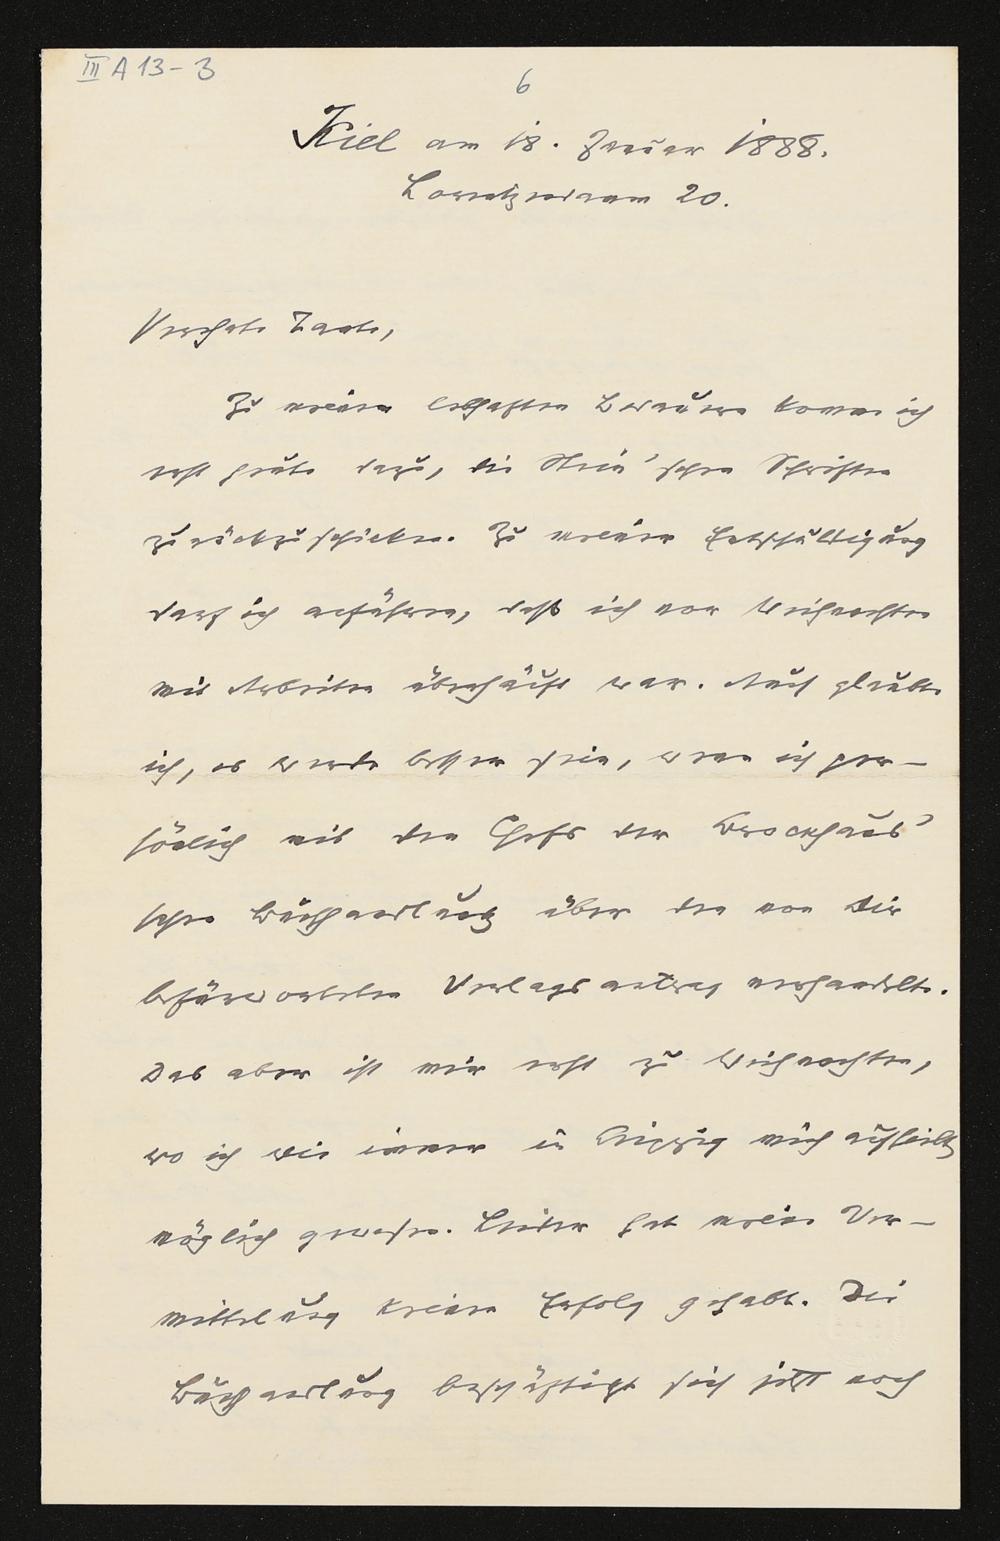 III A 13-3
6
Kiel am 18. Januar 1888.
Lorentzendamm 20.
Verehrte Tante,
Zu meinem lebhaften Bedauern komme ich
erst heute dazu, die Stein'schen Schriften
zurückzuschicken. Zu meiner Entschuldigung
darf ich anführen, daß ich vor Weihnachten
mit Arbeiten überhäuft war. Auch glaubte
ich, es werde besser sein, wenn ich per-
sönlich mit dem Chefs der Brockhaus'
schen Buchhandlung über den von Dir
befürworteten Verlagsantrag verhandelte.
Das aber ist mir erst zu Weihnachten,
wo ich wie immer in Leipzig mich aufhielt,
möglich gewesen. Leider hat meine Ver-
mittelung keinen Erfolg gehabt. Die
Buchhandlung beschäftigt sich jetzt noch